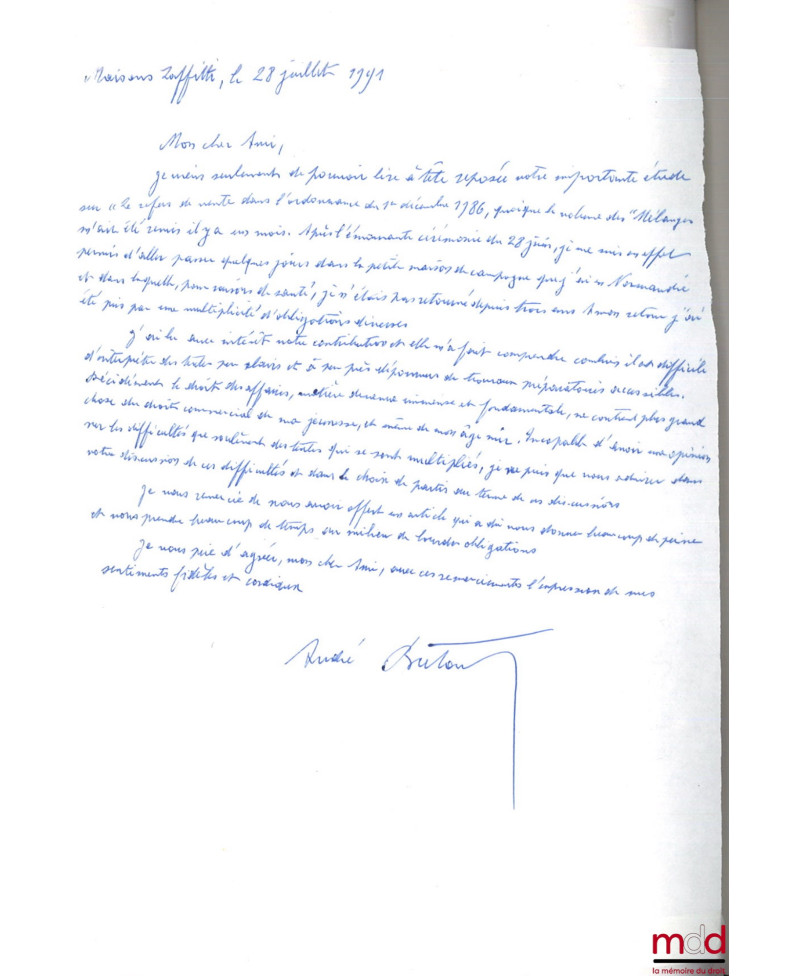 Maisons Laffitte, le 28 juillet 1991
Mon cher Ami,
je viens seulement de pouvoir lire à tête reposée votre importante étude
sur « le refus de vente dans l'ordonnance du 1er décembre 1986, quoique le volume des "Mélanges
m'ait été remis il y a un mois. Après l'émouvante cérémonie du 28 juin, je me suis en effet
permis d'aller passer quelques jours dans la petite maison de campagne que j'ai en Normandie
et dans laquelle, pour raisons de santé, je n'étais pas retourné depuis trois ans. A mon retour j'ai
été pris par une multiplicité d'obligations diverses
J'ai lu avec intérêt votre contribution et elle m'a fait comprendre combien il est difficile
d'interpréter des textes peu clairs et à peu près dépourvus de travaux préparatoires accessibles.
Décidément le droit des affaires, matière devenue immense et fondamentale, ne contient plus grand
chose du droit commercial de ma jeunesse, et même de mon âge mûr. Incapable d'avoir une opinion
sur les difficultés que soulèvent des textes qui se sont multipliés, je ne puis que vous admirer dans
votre discussion de ces difficultés et dans le choix de partis au terme de vos discussions
Je vous remercie de nous avoir offert un article qui a dû vous donner beaucoup de peine
et vous prendre beaucoup de temps au milieu de lourdes obligations
Je vous prie d'agréer, mon cher Ami, avec ces remerciements l'expression de mes
sentiments fidèles et cordiaux
André Breton
mdd
la mémoire du droit